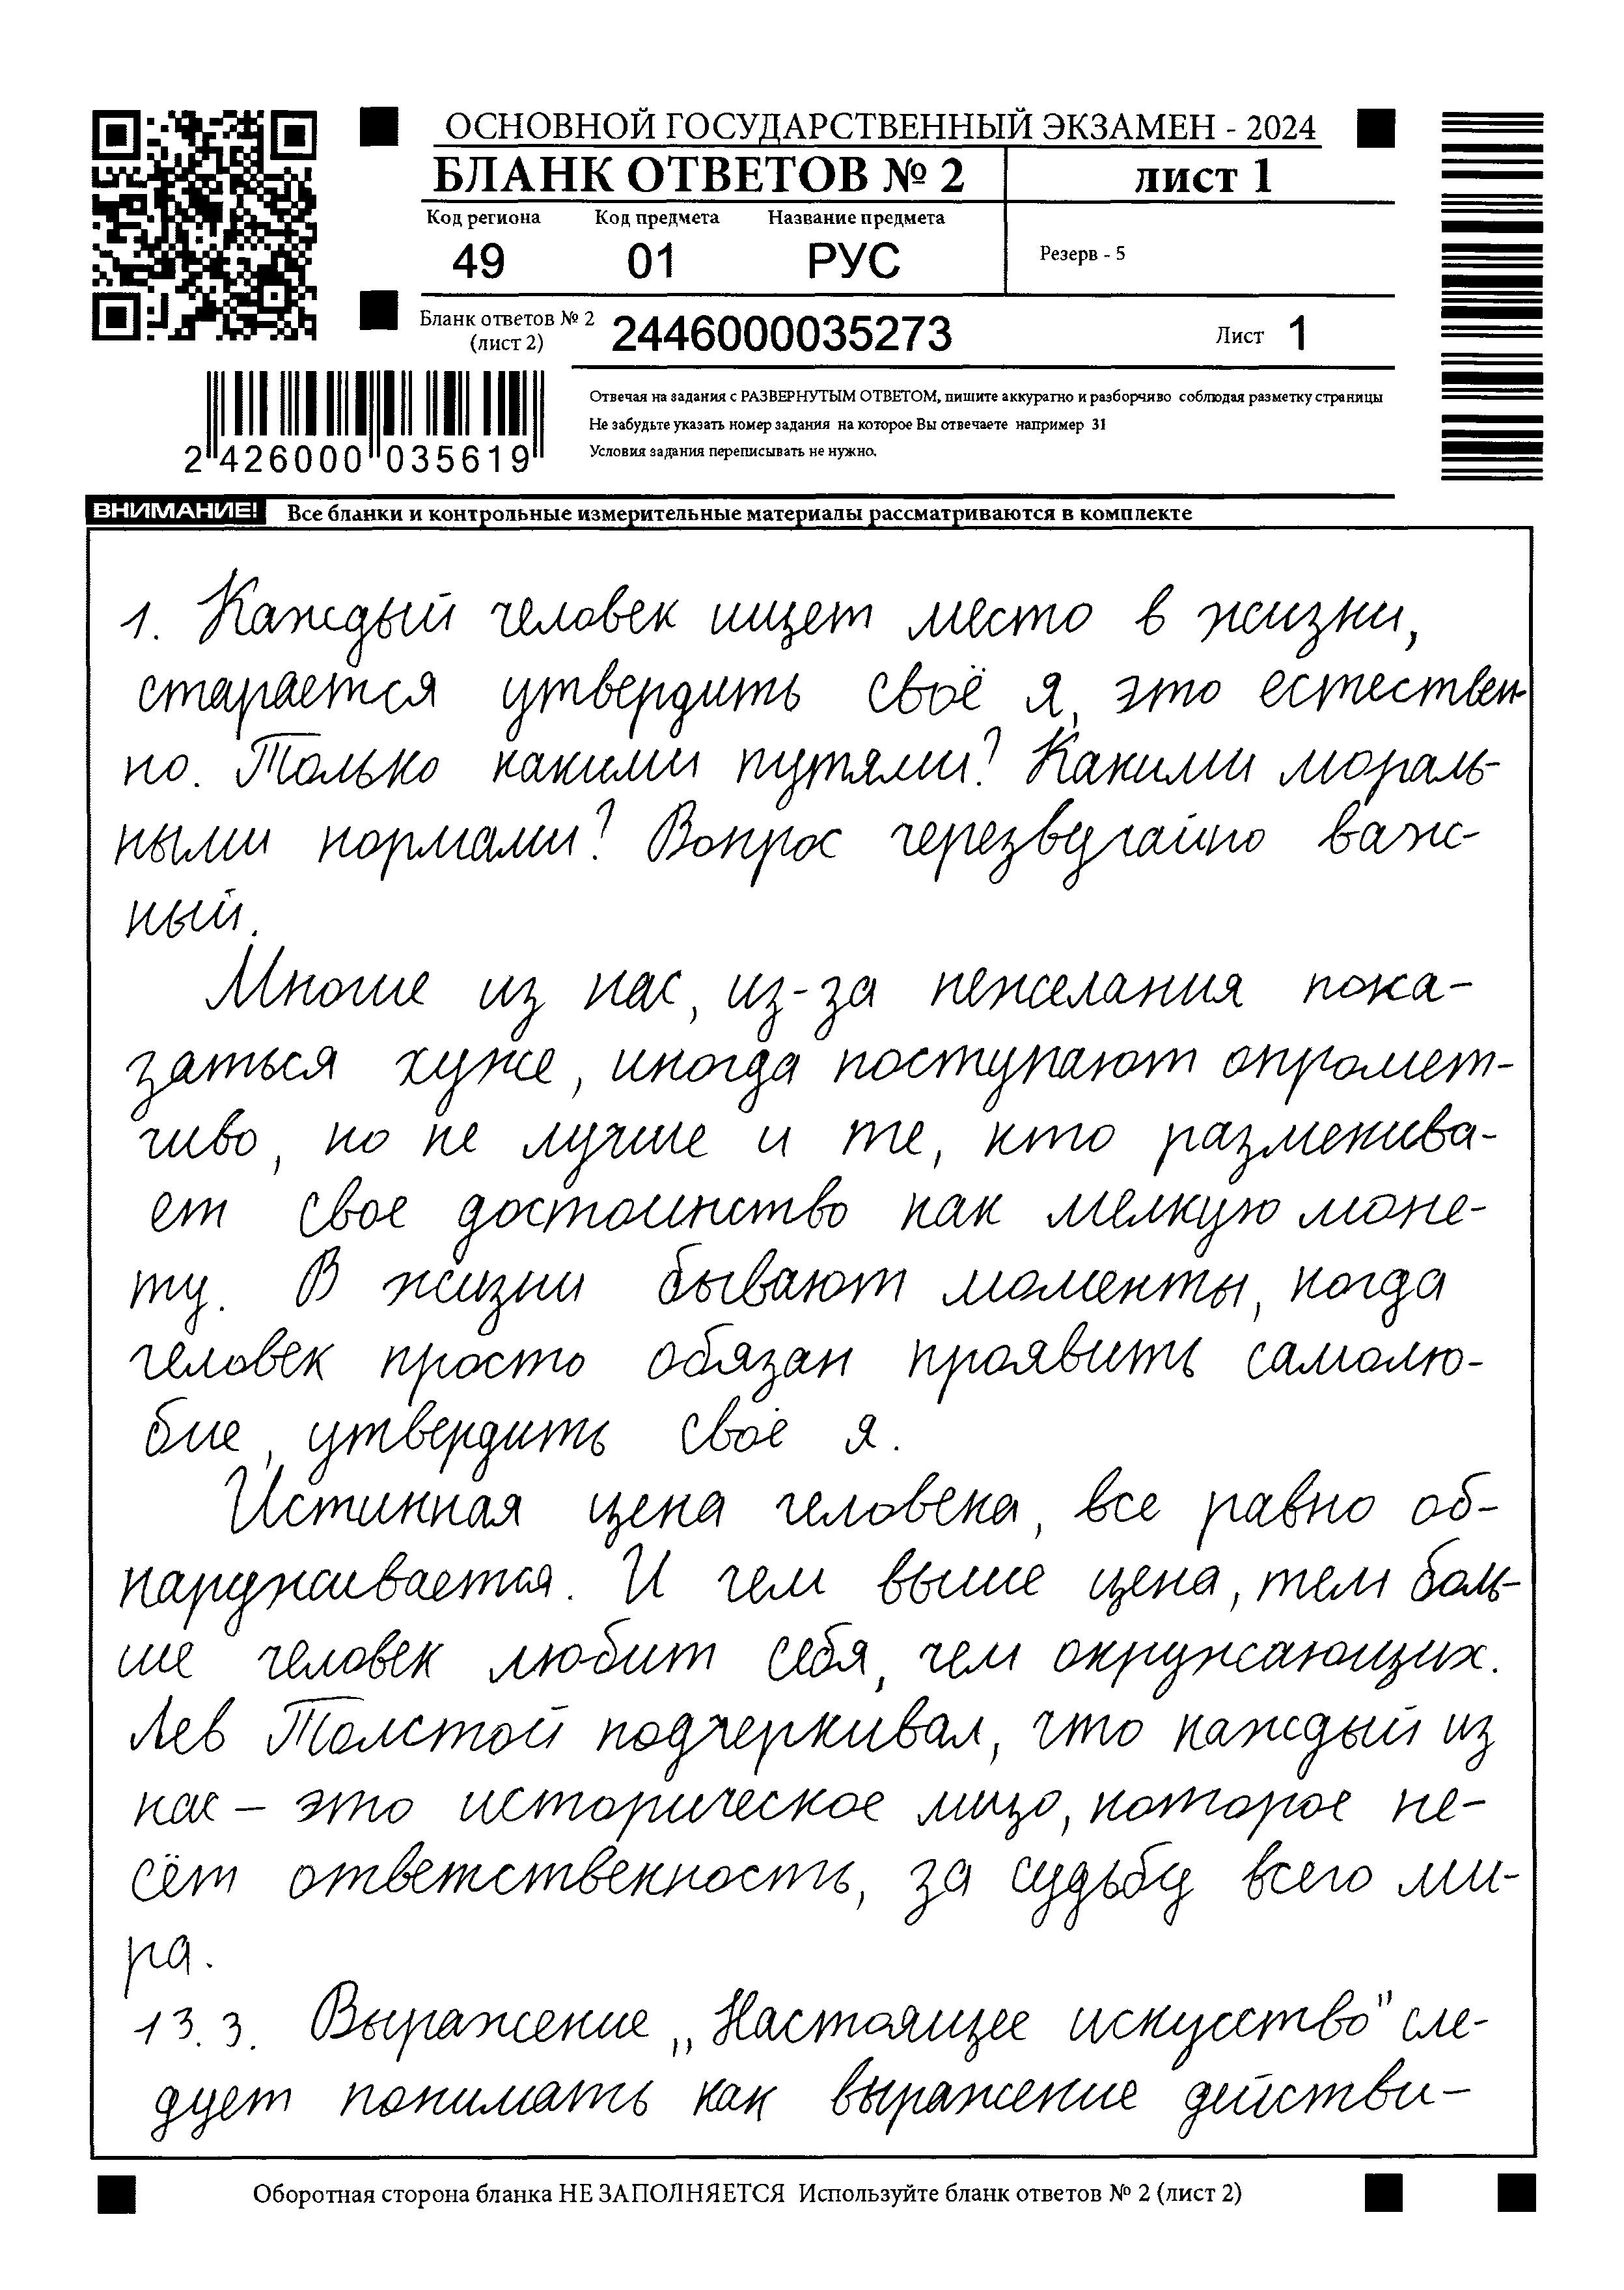 ОСНОВНОЙ ГОСУДАРСТВЕННЫЙ ЭКЗАМЕН - 2024
БЛАНК ОТВЕТОВ № 2
лист 1
Код региона Код предмета Название предмета
49 01 РУС
Резерв - 5
Бланк ответов № 2
(лист 2)
2446000035273
Лист 1
Отвечая на задания с РАЗВЕРНУТЫМ ОТВЕТОМ, пишите аккуратно и разборчиво соблюдая разметку страницы
Не забудьте указать номер задания на которое Вы отвечаете например 31
Условия задания переписывать не нужно.
2 426000 035619
ВНИМАНИЕ! Все бланки и контрольные измерительные материалы рассматриваются в комплекте
1. Каждый человек ищет место в жизни,
старается утвердить своё я, это естествен-
но. Только какими путями? Какими мораль-
ными нормами? Вопрос черезвучайно важ-
ный.
Многие из нас, из-за нежелания пока-
заться хуже, иногда поступают опромет-
чиво, но не лучше и те, кто разменива-
ет свое достоинство как мелкую моне-
ту. В жизни бывают моменты, когда
человек просто обязан проявить самолю-
бие, утвердить своё я.
Истинная цена человека, все равно об-
наруживается. И чем выше цена, тем боль-
ше человек любит себя, чем окружающих.
Лев Толстой подчеркивал, что каждый из
нас – это историческое лицо, которое не-
сёт ответственность, за судьбу всего ми-
ра.
13.3. Выражение „Настоящее искусство" сле-
дует понимать как выражение действи-
Оборотная сторона бланка НЕ ЗАПОЛНЯЕТСЯ Используйте бланк ответов № 2 (лист 2)